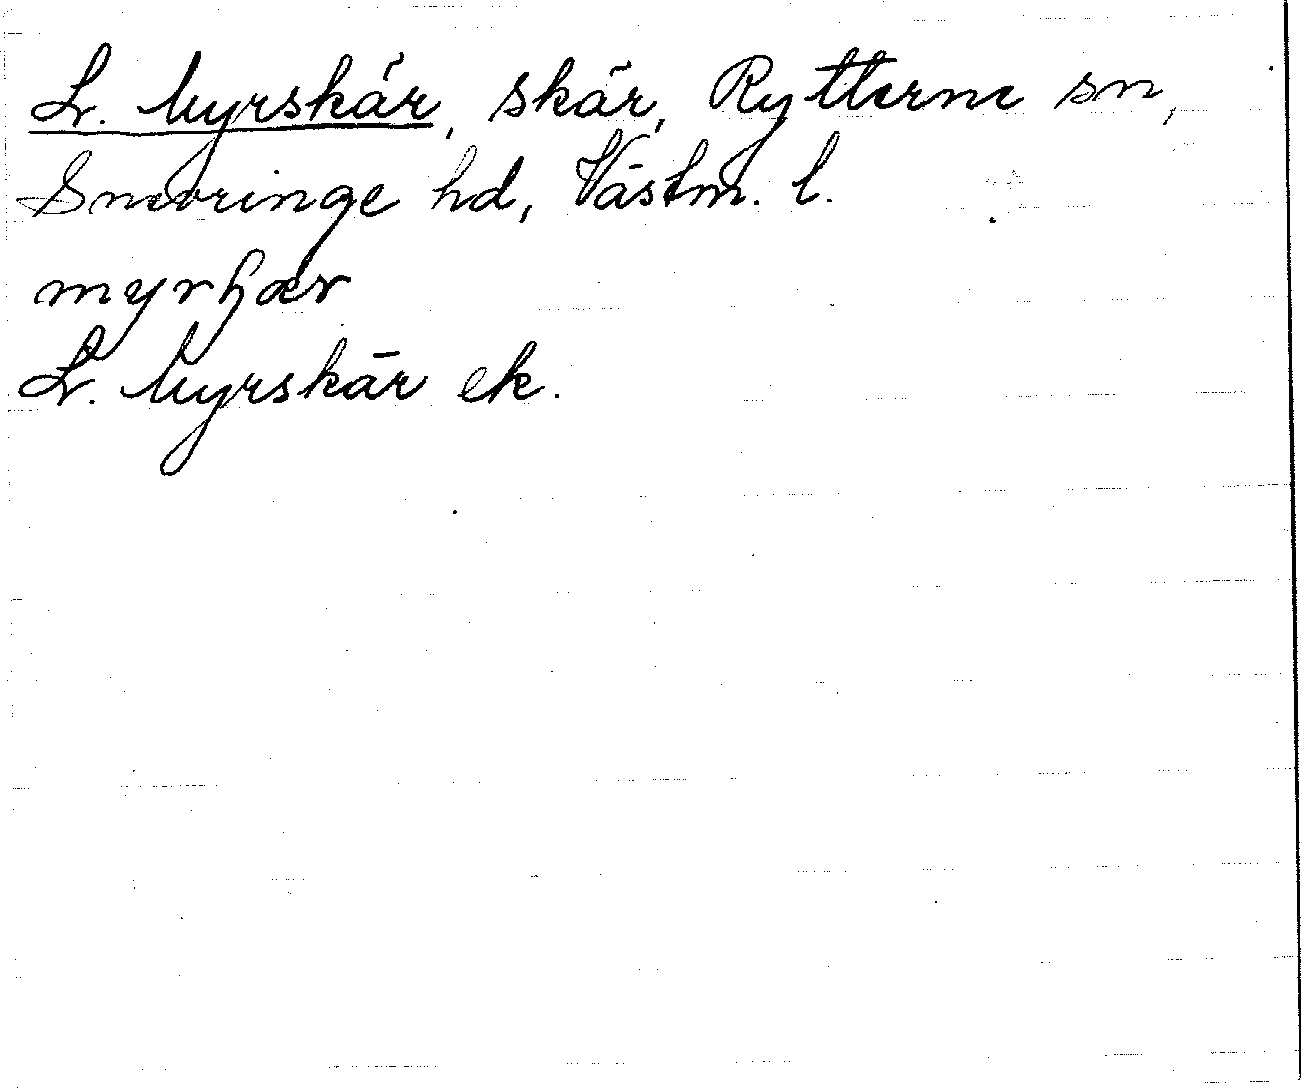 L. Myrskär, skär, Rytterne sn,
Snevringe hd, Västm. l.
myrɧær
L. Myrskär ek.